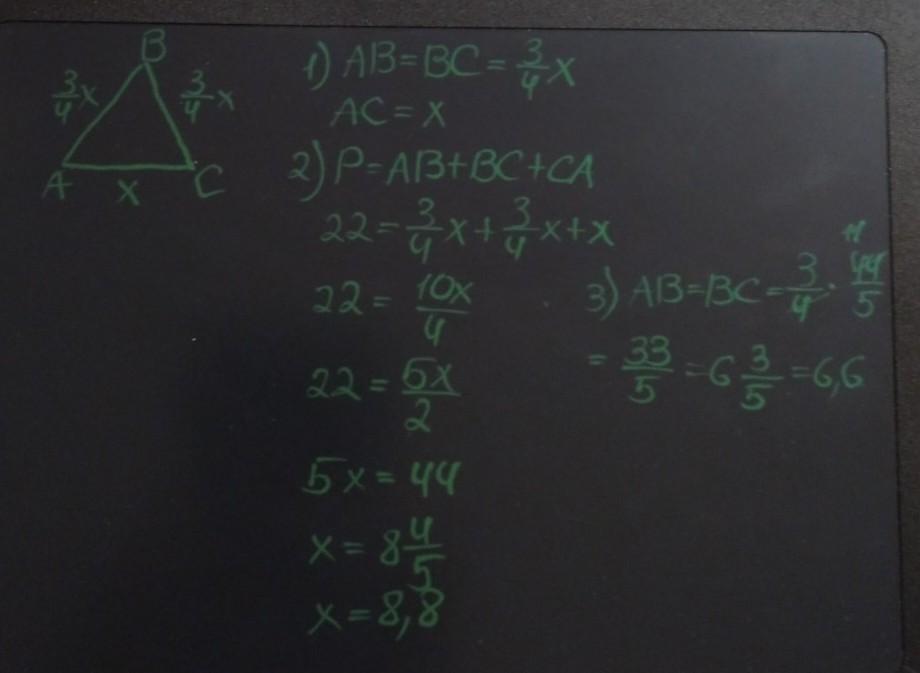 B
3/4x 3/4x
A x C
1) AB=BC=3/4x
AC=x
2) P=AB+BC+CA
22=3/4x+3/4x+x
22=10x/4
22=5x/2
5x=44
x=8 4/5
x=8,8
11
3) AB=BC=3/4·44/5
=33/5=6 3/5=6,6